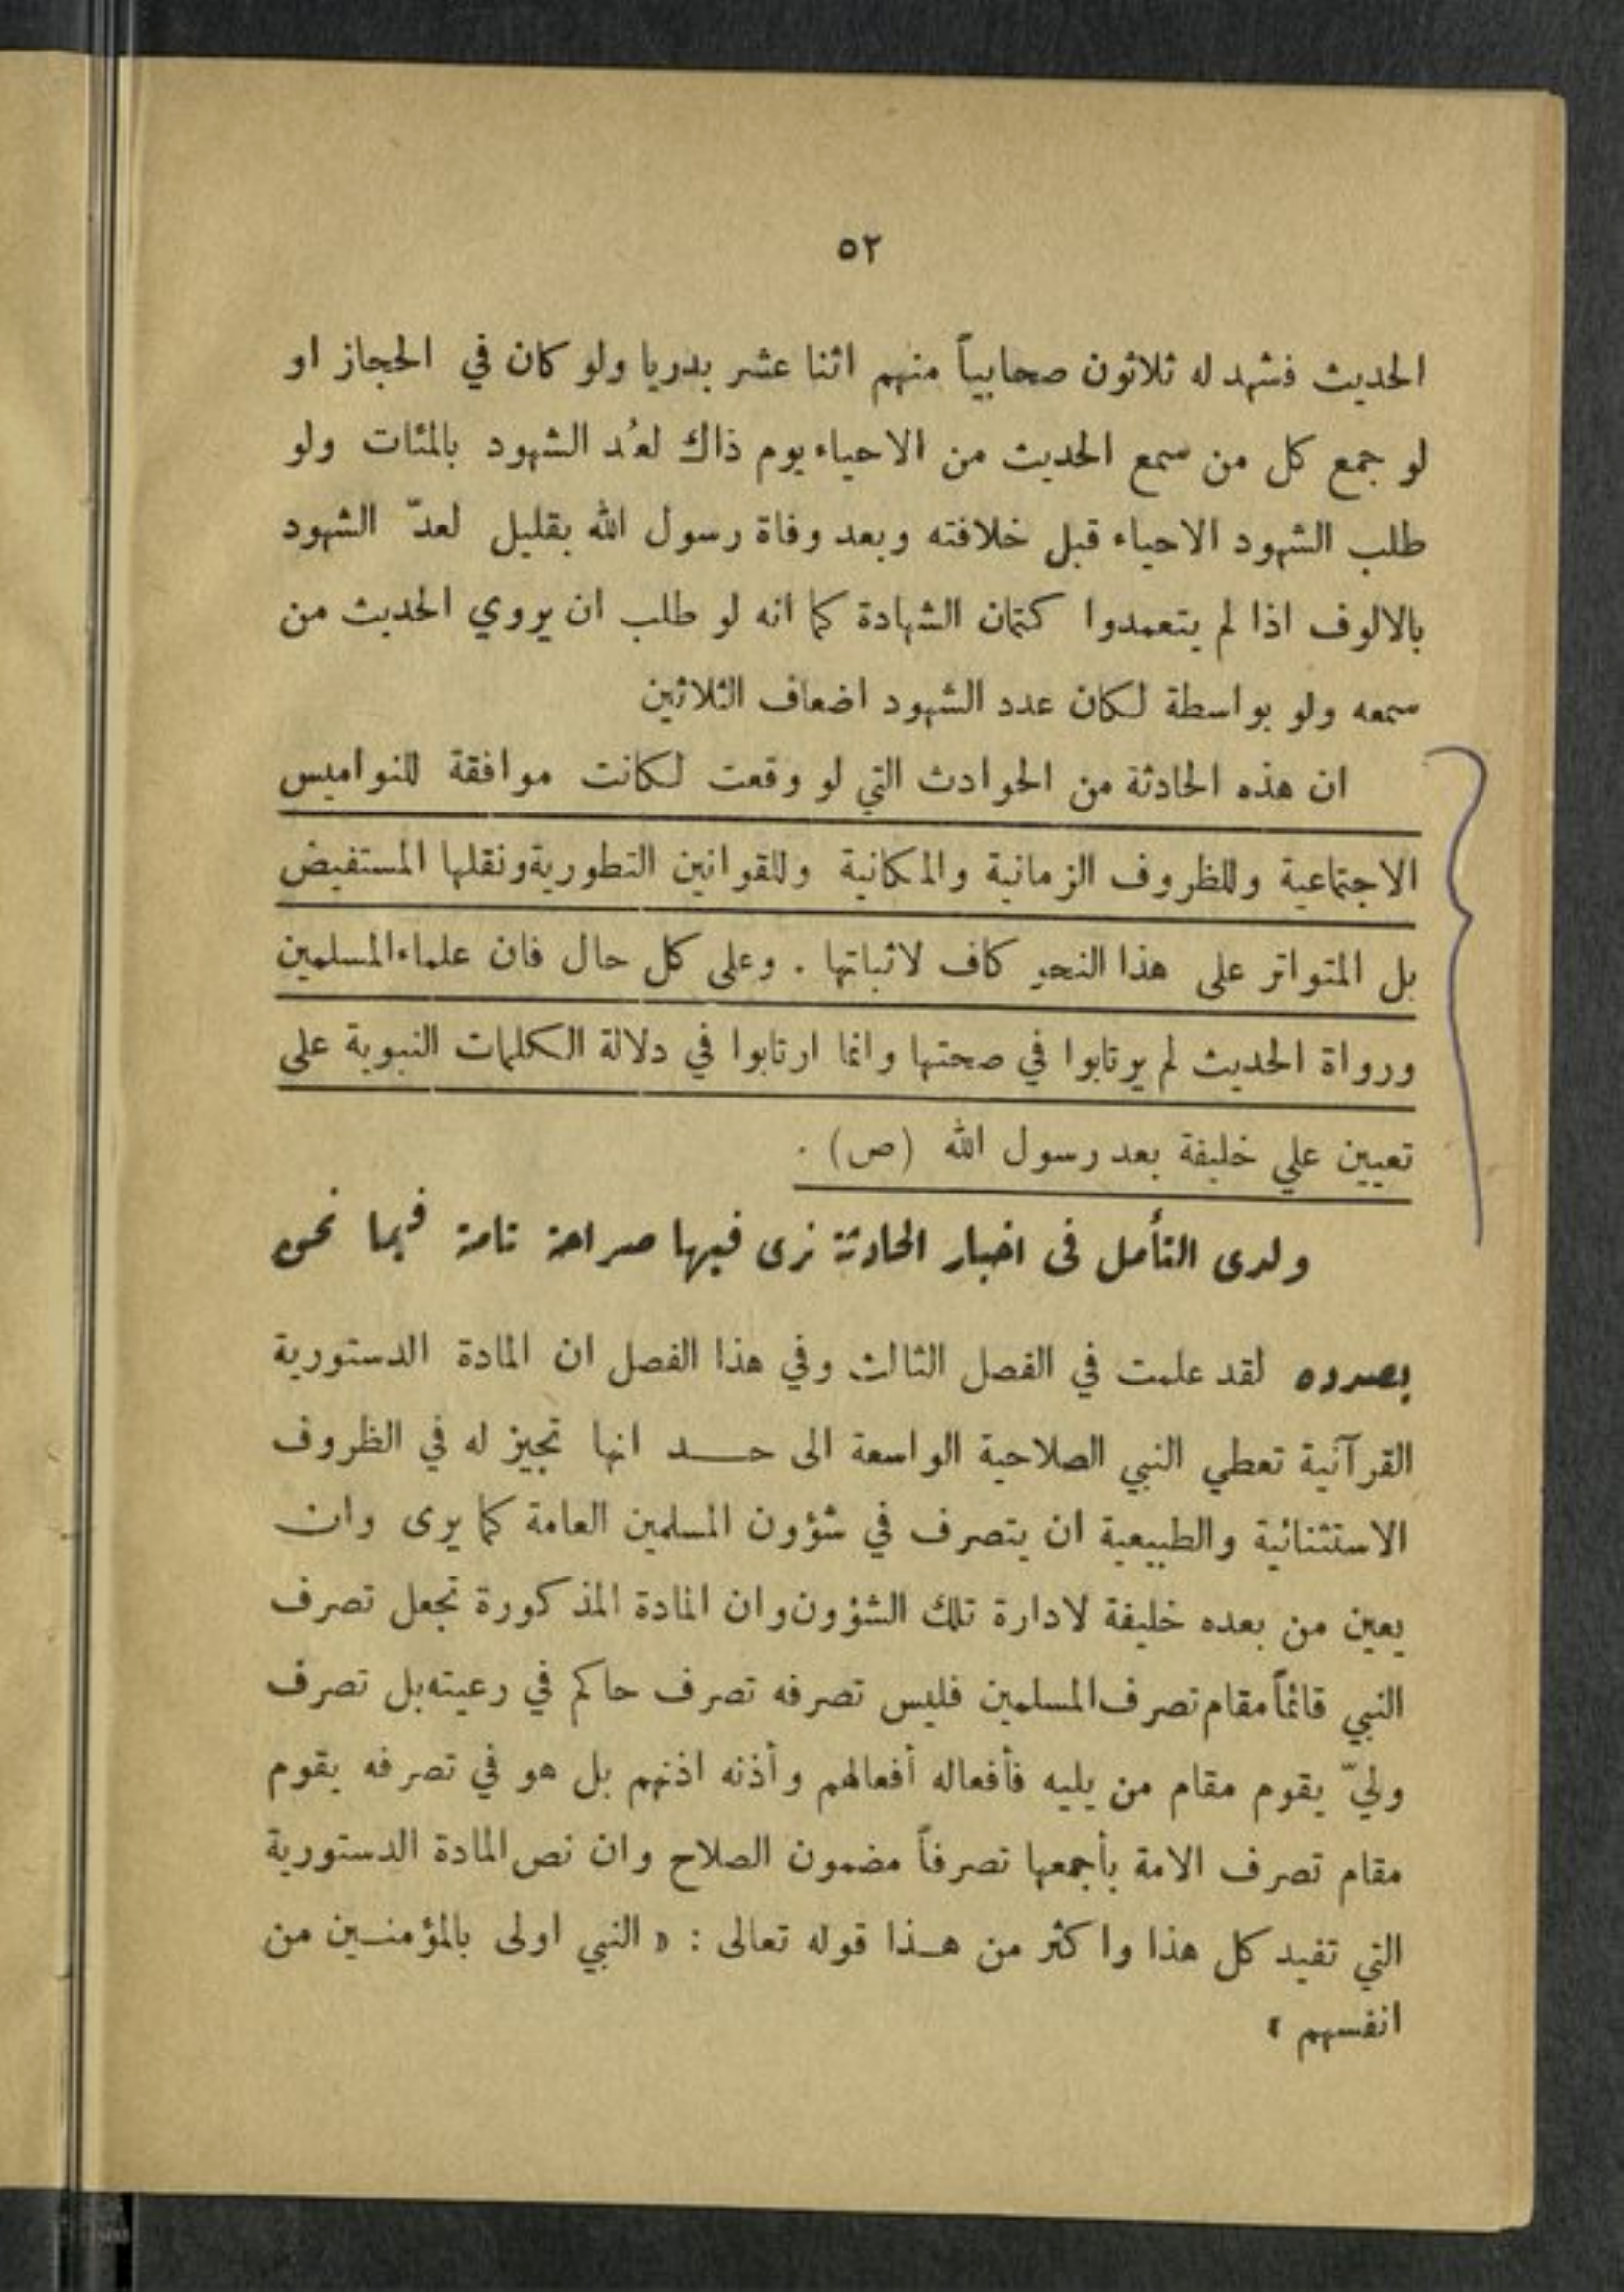 ٥٢
الحديث فشهد له ثلاثون صحابياً منهم اثنا عشر بدريا ولو كان في الحجاز او
لو جمع كل من سمع الحديث من الاحياء يوم ذاك لعُد الشهود بالمئات ولو
طلب الشهود الاحياء قبل خلافته وبعد وفاة رسول الله بقليل لعدّ الشهود
بالالوف اذا لم يتعمدوا كتمان الشهادة كما انه لو طلب ان يروي الحديث من
سمعه ولو بواسطة لكان عدد الشهود اضعاف الثلاثين
ان هذه الحادثة من الحوادث التي لو وقعت لكانت موافقة للنواميس
الاجتماعية وللظروف الزمانية والمكانية وللقوانين التطورية ونقلها المستفيض
بل المتواتر على هذا النحو كاف لاثباتها . وعلى كل حال فان علماء المسلمين
ورواة الحديث لم يرتابوا في صحتها وانما ارتابوا في دلالة الكلمات النبوية على
تعيين علي خليفة بعد رسول الله (ص) .
ولدى التأمل فى اخبار الحادثة نرى فيها صراحة تامة فيما نحن
بصدده لقد علمت في الفصل الثالث وفي هذا الفصل ان المادة الدستورية
القرآنية تعطي النبي الصلاحية الواسعة الى حد انها تجيز له في الظروف
الاستثنائية والطبيعية ان يتصرف في شؤون المسلمين العامة كما يرى وان
يعين من بعده خليفة لادارة تلك الشؤون وان المادة المذكورة تجعل تصرف
النبي قائماً مقام تصرف المسلمين فليس تصرفه تصرف حاكم في رعيته بل تصرف
وليّ يقوم مقام من يليه فأفعاله أفعالهم وأذنه اذنهم بل هو في تصرفه يقوم
مقام تصرف الامة بأجمعها تصرفاً مضمون الصلاح وان نص المادة الدستورية
التي تفيد كل هذا واكثر من هذا قوله تعالى : « النبي اولى بالمؤمنين من
انفسهم »